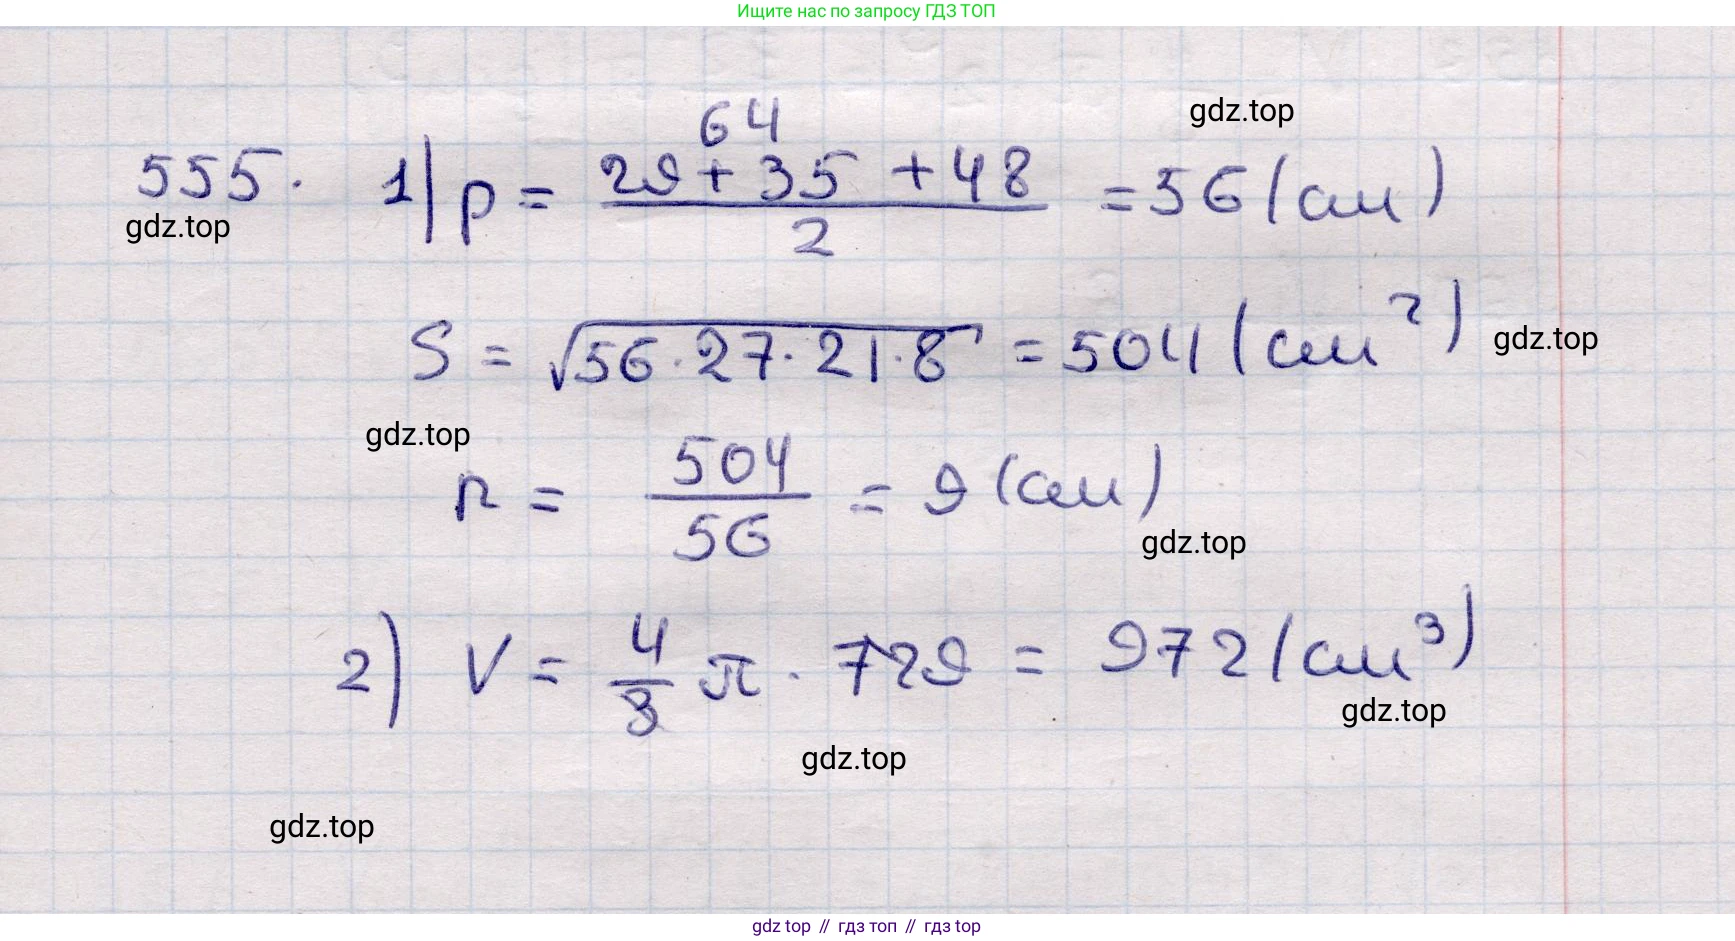 Ищите нас по запросу ГДЗ ТОП
gdz.top
64
555. 1) p = (29 + 35 + 48) / 2 = 56 (см)
gdz.top
S = √56·27·21·8 = 504 (см²)
gdz.top
gdz.top
r = 504 / 56 = 9 (см)
gdz.top
2) V = 4/3 π · 729 = 972 (см³)
gdz.top
gdz.top
gdz.top
gdz top // гдз топ // gdz top